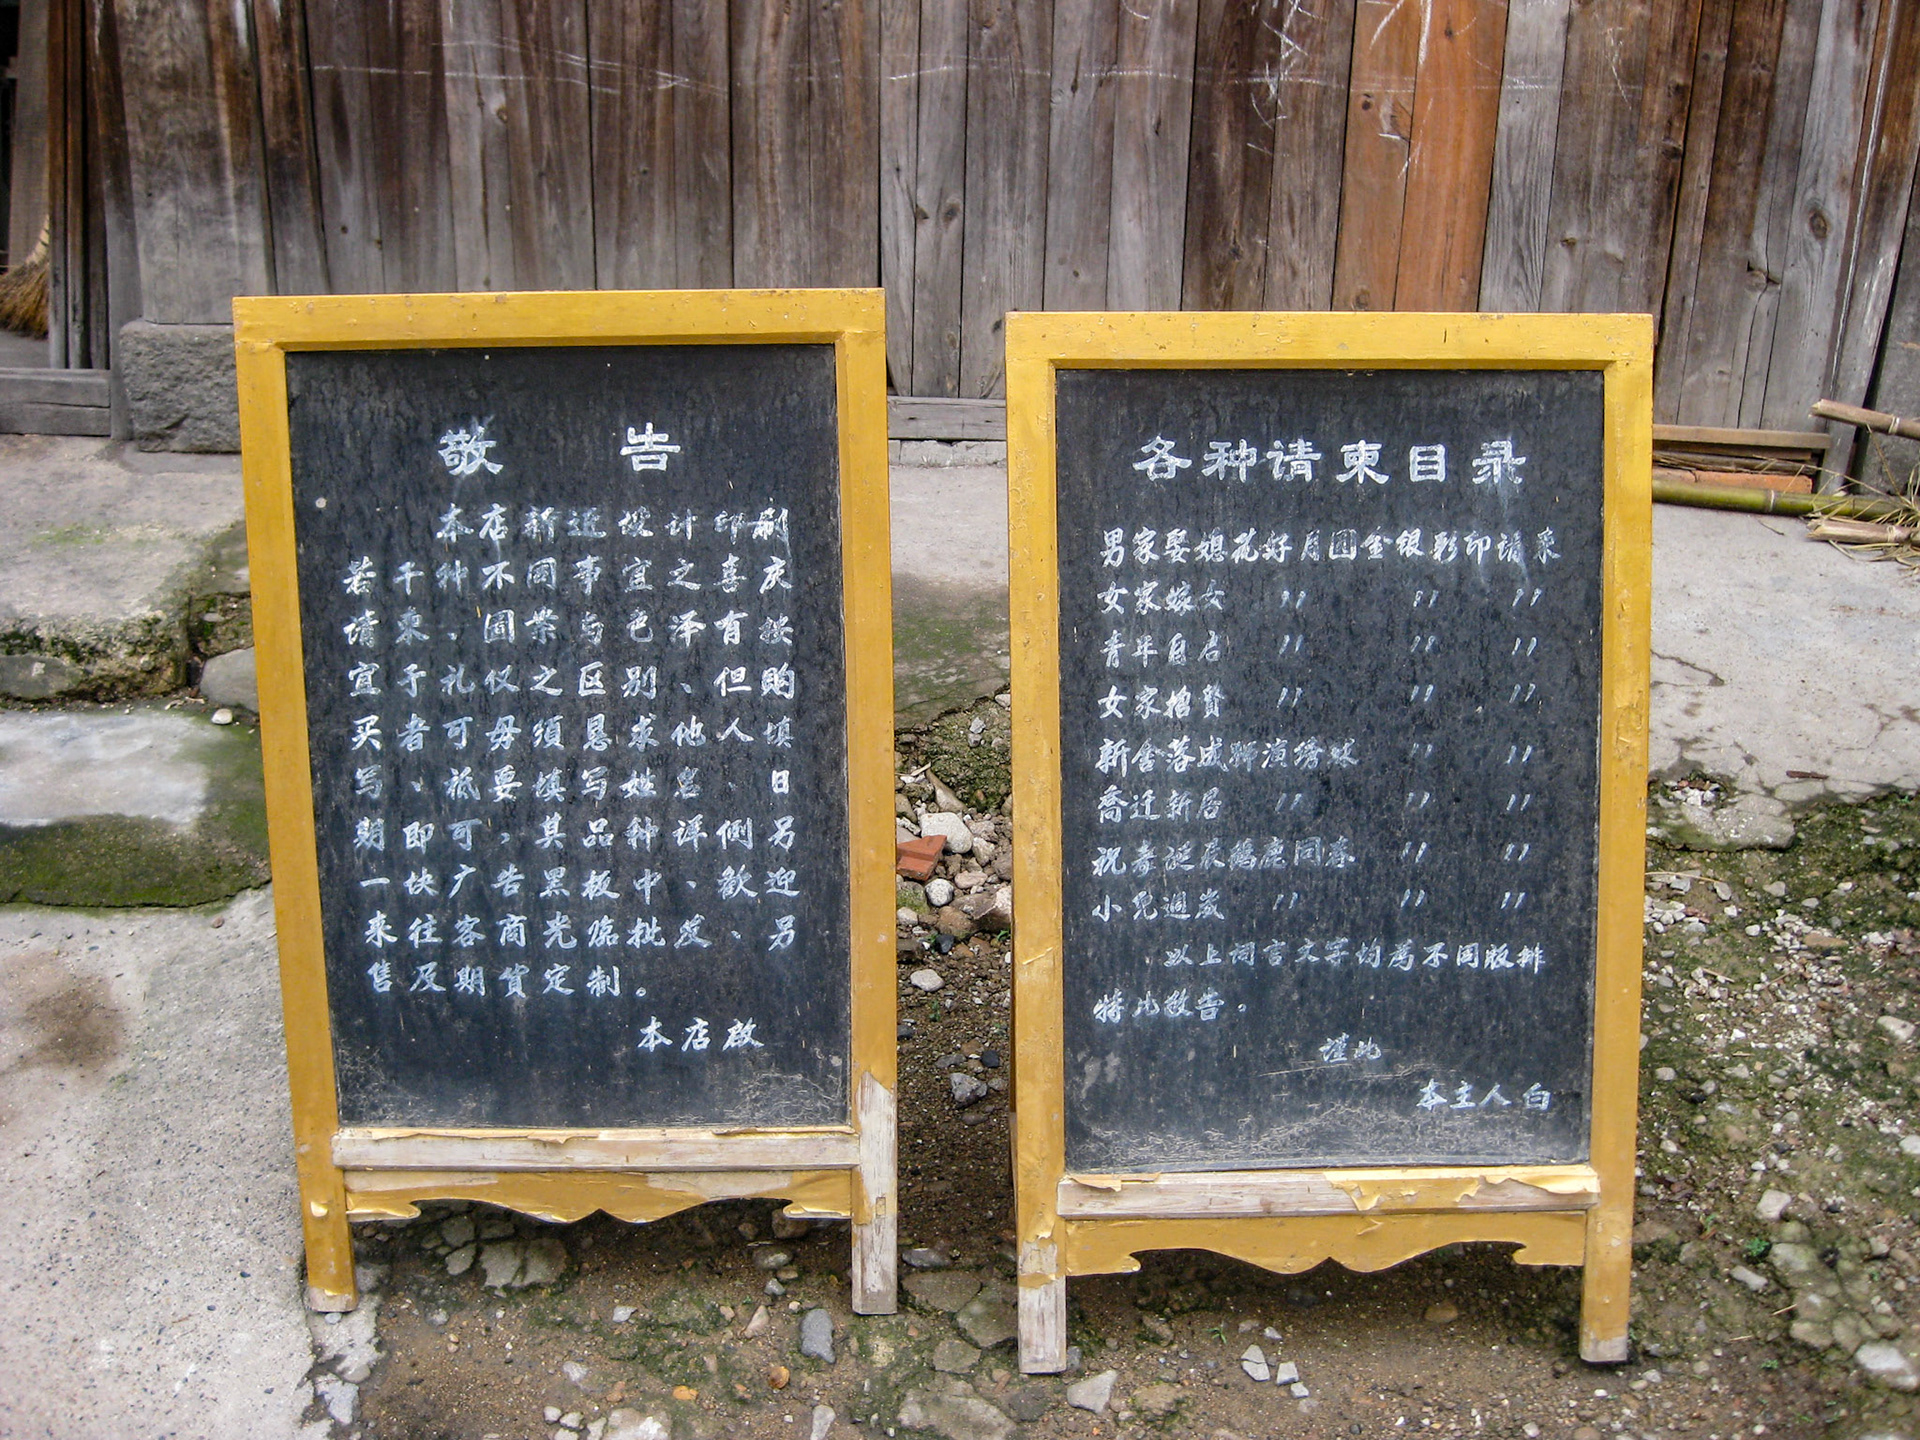 敬 告
本店新近设计印刷
若干种不同事宜之喜庆
请柬、图案与色泽有按
宜于礼仪之区别、但购
买者可毋须恳求他人填
写、祗要填写姓名、日
期即可，其品种详侧另
一块广告黑板中、歡迎
来往客商光临批发、另
售及期貨定制。
本店啟
各种请柬目录
男家娶媳花好月圆金银彩印请柬
女家嫁女 〃 〃 〃
青年自启 〃 〃 〃
女家招贅 〃 〃 〃
新舍落成狮演绣球 〃 〃
喬迁新居 〃 〃 〃
祝寿诞辰鶴鹿同春 〃 〃
小児週岁 〃 〃 〃
以上词言文字均為不同版排
特此敬告。
谨此
本主人白